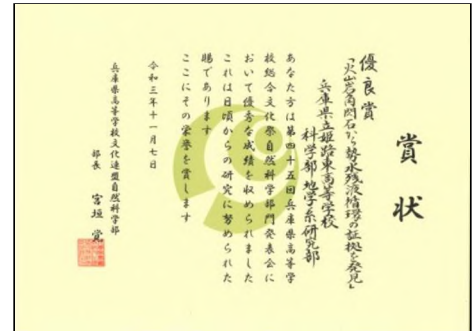 賞状
優良賞
「火山岩角閃石から熱水残液循環の証拠を発見」
兵庫県立姫路東高等学校
科学部 地学系研究部
あなた方は第四十五回兵庫県高等学
校総合文化祭自然科学部門発表会に
おいて優秀な成績を収められました
これは日頃からの研究に努められた
賜であります
ここにその栄誉を賞します
令和三年十一月七日
兵庫県高等学校文化連盟自然科学部
部長 宮垣 覚